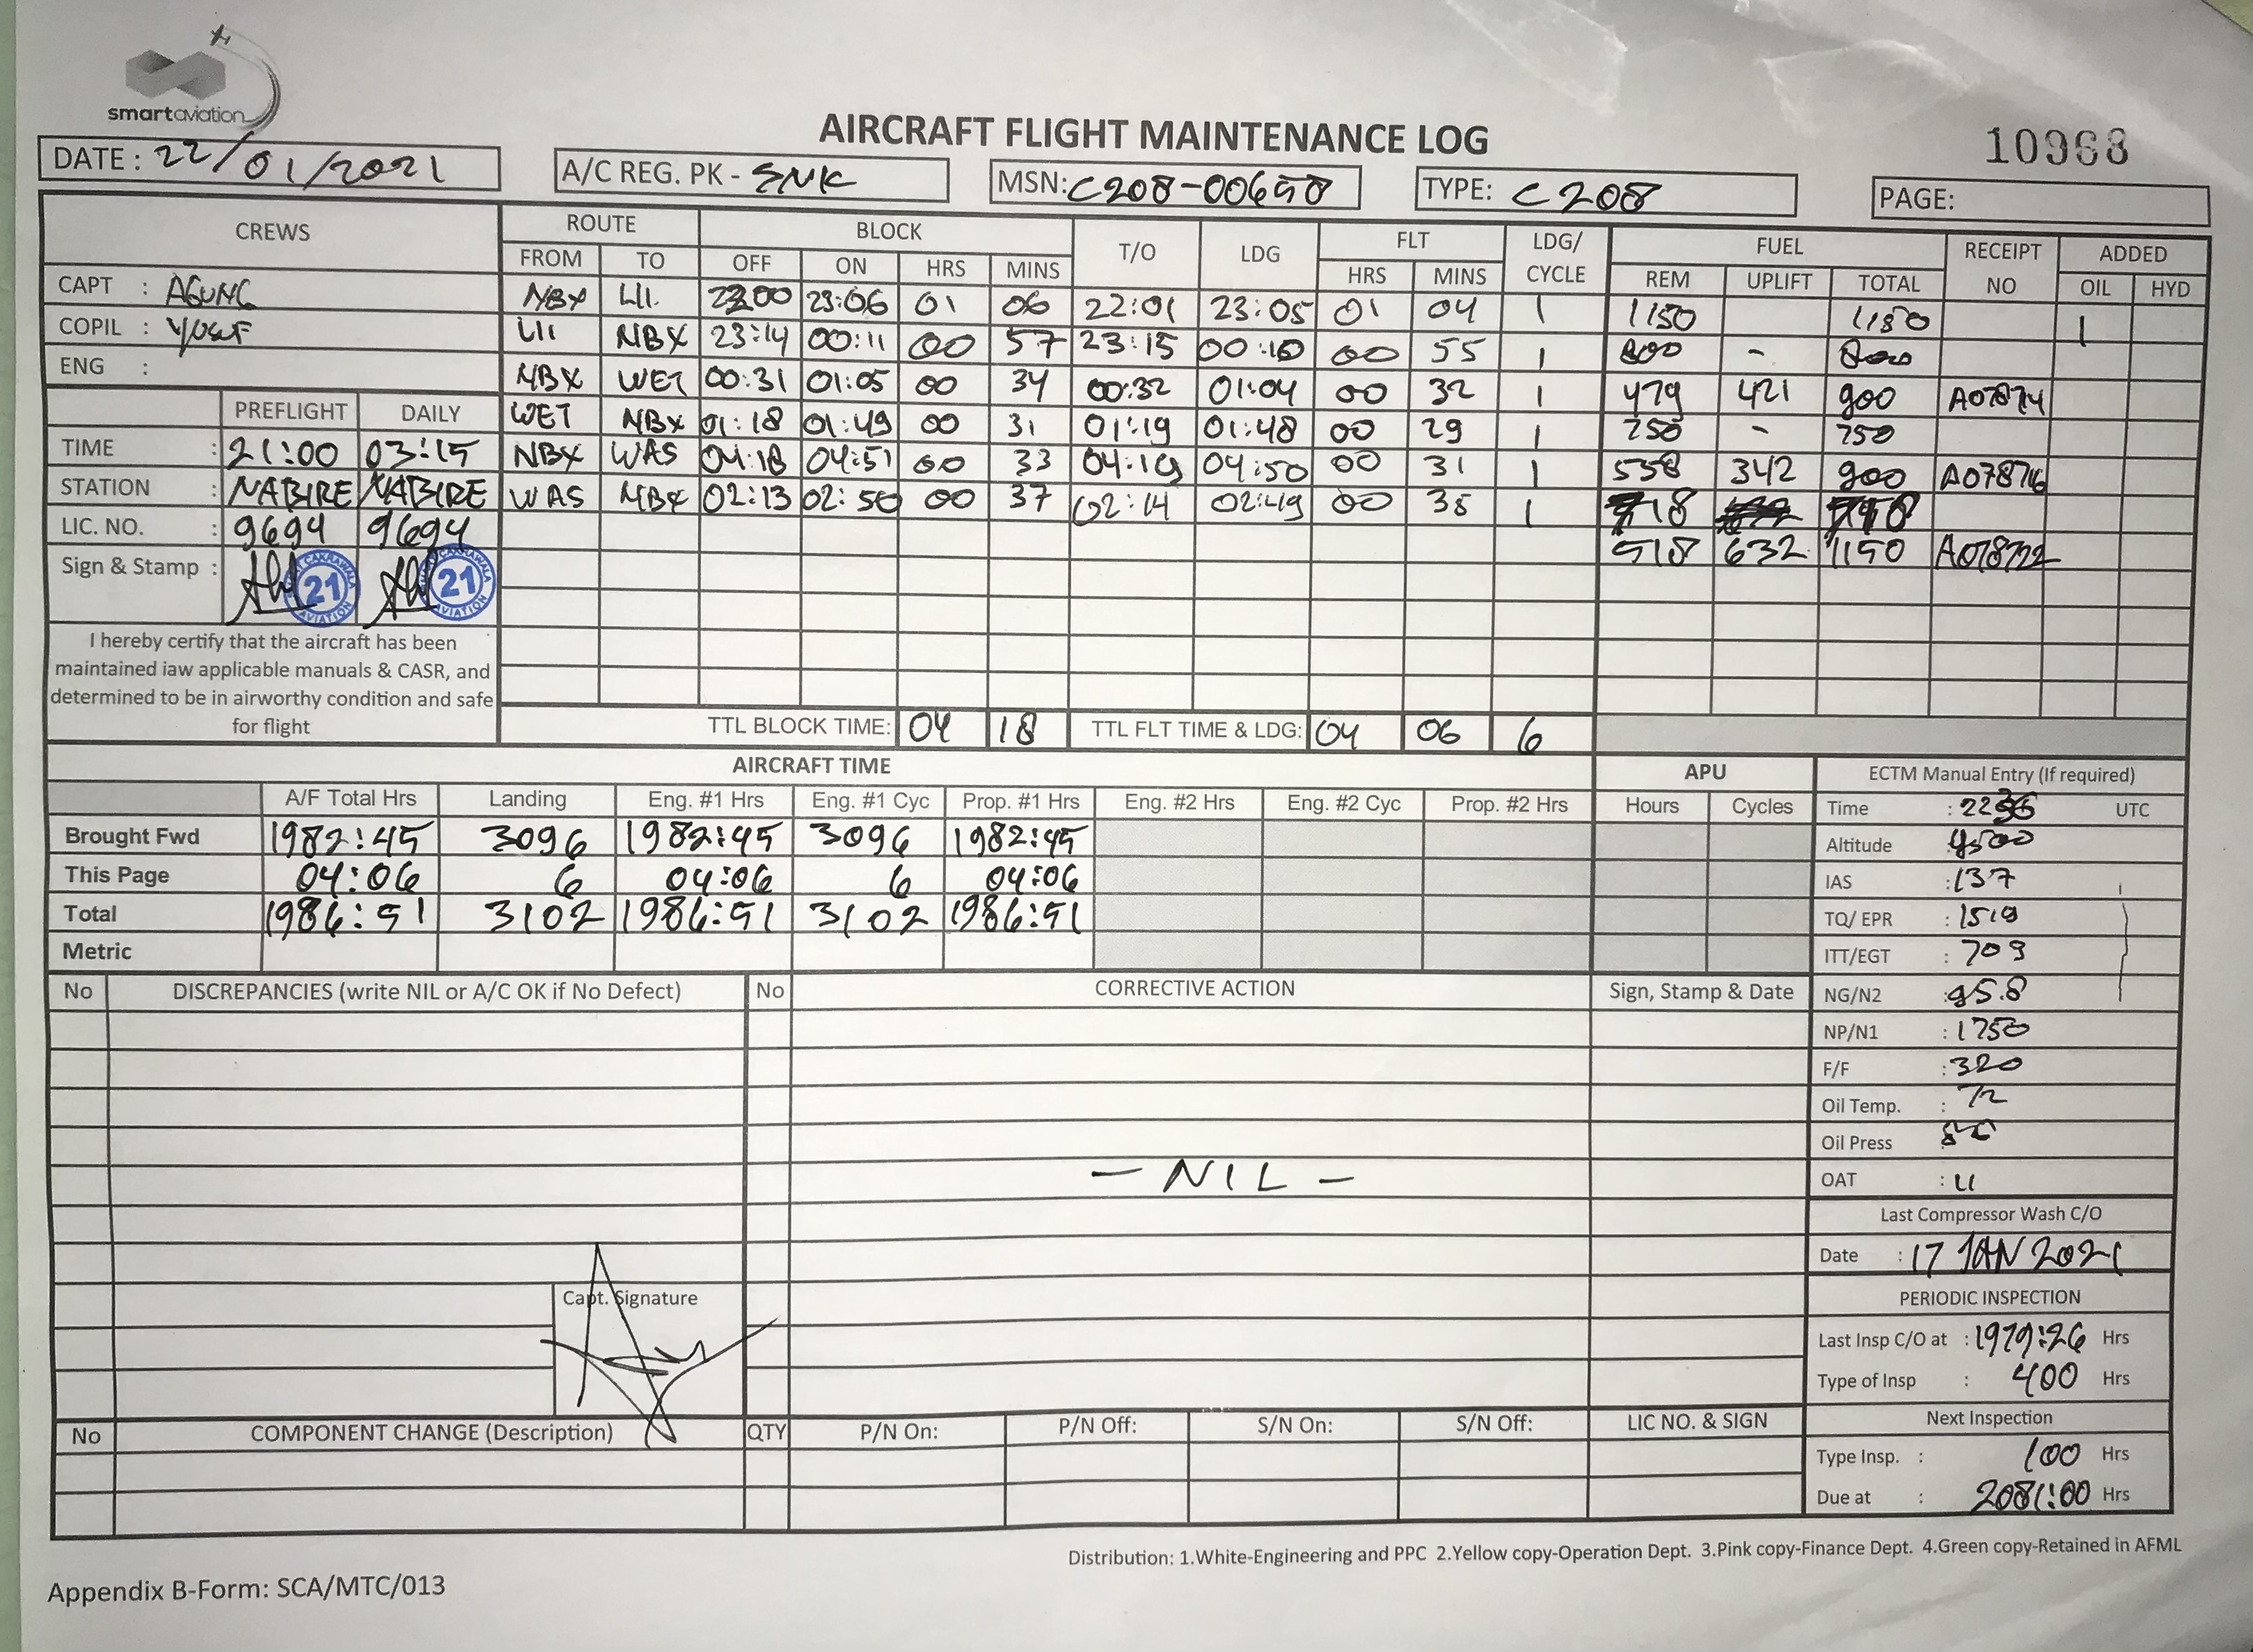 smartaviation
AIRCRAFT FLIGHT MAINTENANCE LOG
10968
DATE : 22/01/2021
A/C REG. PK - SNK
MSN: C208-00658
TYPE: C208
PAGE:
CREWS
CAPT : AGUNG
COPIL : YUSUF
ENG :
PREFLIGHT DAILY
TIME : 21:00 03:15
STATION : NABIRE NABIRE
LIC. NO. : 9694 9694
Sign & Stamp : 21 AVIATION 21 AVIATION
I hereby certify that the aircraft has been
maintained iaw applicable manuals & CASR, and
determined to be in airworthy condition and safe
for flight
ROUTE BLOCK T/O LDG FLT LDG/ CYCLE FUEL RECEIPT NO ADDED
FROM TO OFF ON HRS MINS HRS MINS REM UPLIFT TOTAL OIL HYD
NBX LII 2200 23:06 01 06 22:01 23:05 01 04 1 1150 1150 1
LII NBX 23:14 00:11 00 57 23:15 00:10 00 55 1 800 - 800
NBX WET 00:31 01:05 00 34 00:32 01:04 00 32 1 479 421 900 A07874
WET NBX 01:18 01:49 00 31 01:19 01:48 00 29 1 750 - 750
NBX WAS 04:18 04:51 00 33 04:19 04:50 00 31 1 558 342 900 A07876
WAS NBX 02:13 02:50 00 37 02:14 02:49 00 35 1
518 632 1150
TTL BLOCK TIME: 04 18
TTL FLT TIME & LDG: 04 06 6
AIRCRAFT TIME
A/F Total Hrs Landing Eng. #1 Hrs Eng. #1 Cyc Prop. #1 Hrs Eng. #2 Hrs Eng. #2 Cyc Prop. #2 Hrs
Brought Fwd 1982:45 3096 1982:45 3096 1982:45
This Page 04:06 6 04:06 6 04:06
Total 1986:51 3102 1986:51 3102 1986:51
Metric
APU
Hours Cycles
ECTM Manual Entry (If required)
Time : UTC
Altitude : 9500
IAS : 137
TQ/ EPR : 1519
ITT/EGT : 709
NG/N2 : 95.8
NP/N1 : 1750
F/F : 320
Oil Temp. : 72
Oil Press
OAT : 11
Last Compressor Wash C/O
Date : 17 JAN 2021
PERIODIC INSPECTION
Last Insp C/O at : 1979:26 Hrs
Type of Insp : 400 Hrs
Next Inspection
Type Insp. : 100 Hrs
Due at : 2081:00 Hrs
No DISCREPANCIES (write NIL or A/C OK if No Defect) No CORRECTIVE ACTION Sign, Stamp & Date
- NIL -
Capt. Signature
No COMPONENT CHANGE (Description) QTY P/N On: P/N Off: S/N On: S/N Off: LIC NO. & SIGN
Distribution: 1.White-Engineering and PPC 2.Yellow copy-Operation Dept. 3.Pink copy-Finance Dept. 4.Green copy-Retained in AFML
Appendix B-Form: SCA/MTC/013